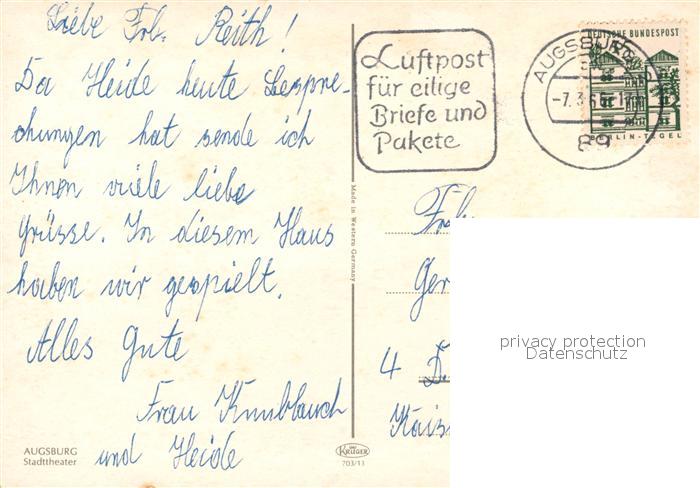 Liebe Frl. Reith!
Da Heide heute Bespre-
chungen hat sende ich
Ihnen viele liebe
Grüsse. In diesem Haus
haben wir gespielt.
Alles Gute
Frau Knublauch
und Heide
AUGSBURG
Stadttheater
Luftpost
für eilige
Briefe und
Pakete
AUGSBURG
-7.3.6
89
DEUTSCHE BUNDESPOST
BERLIN-TEGEL
Made in Western Germany
KRÜGER
703/11
Frl.
Ger
4 D.
Kais
privacy protection
Datenschutz